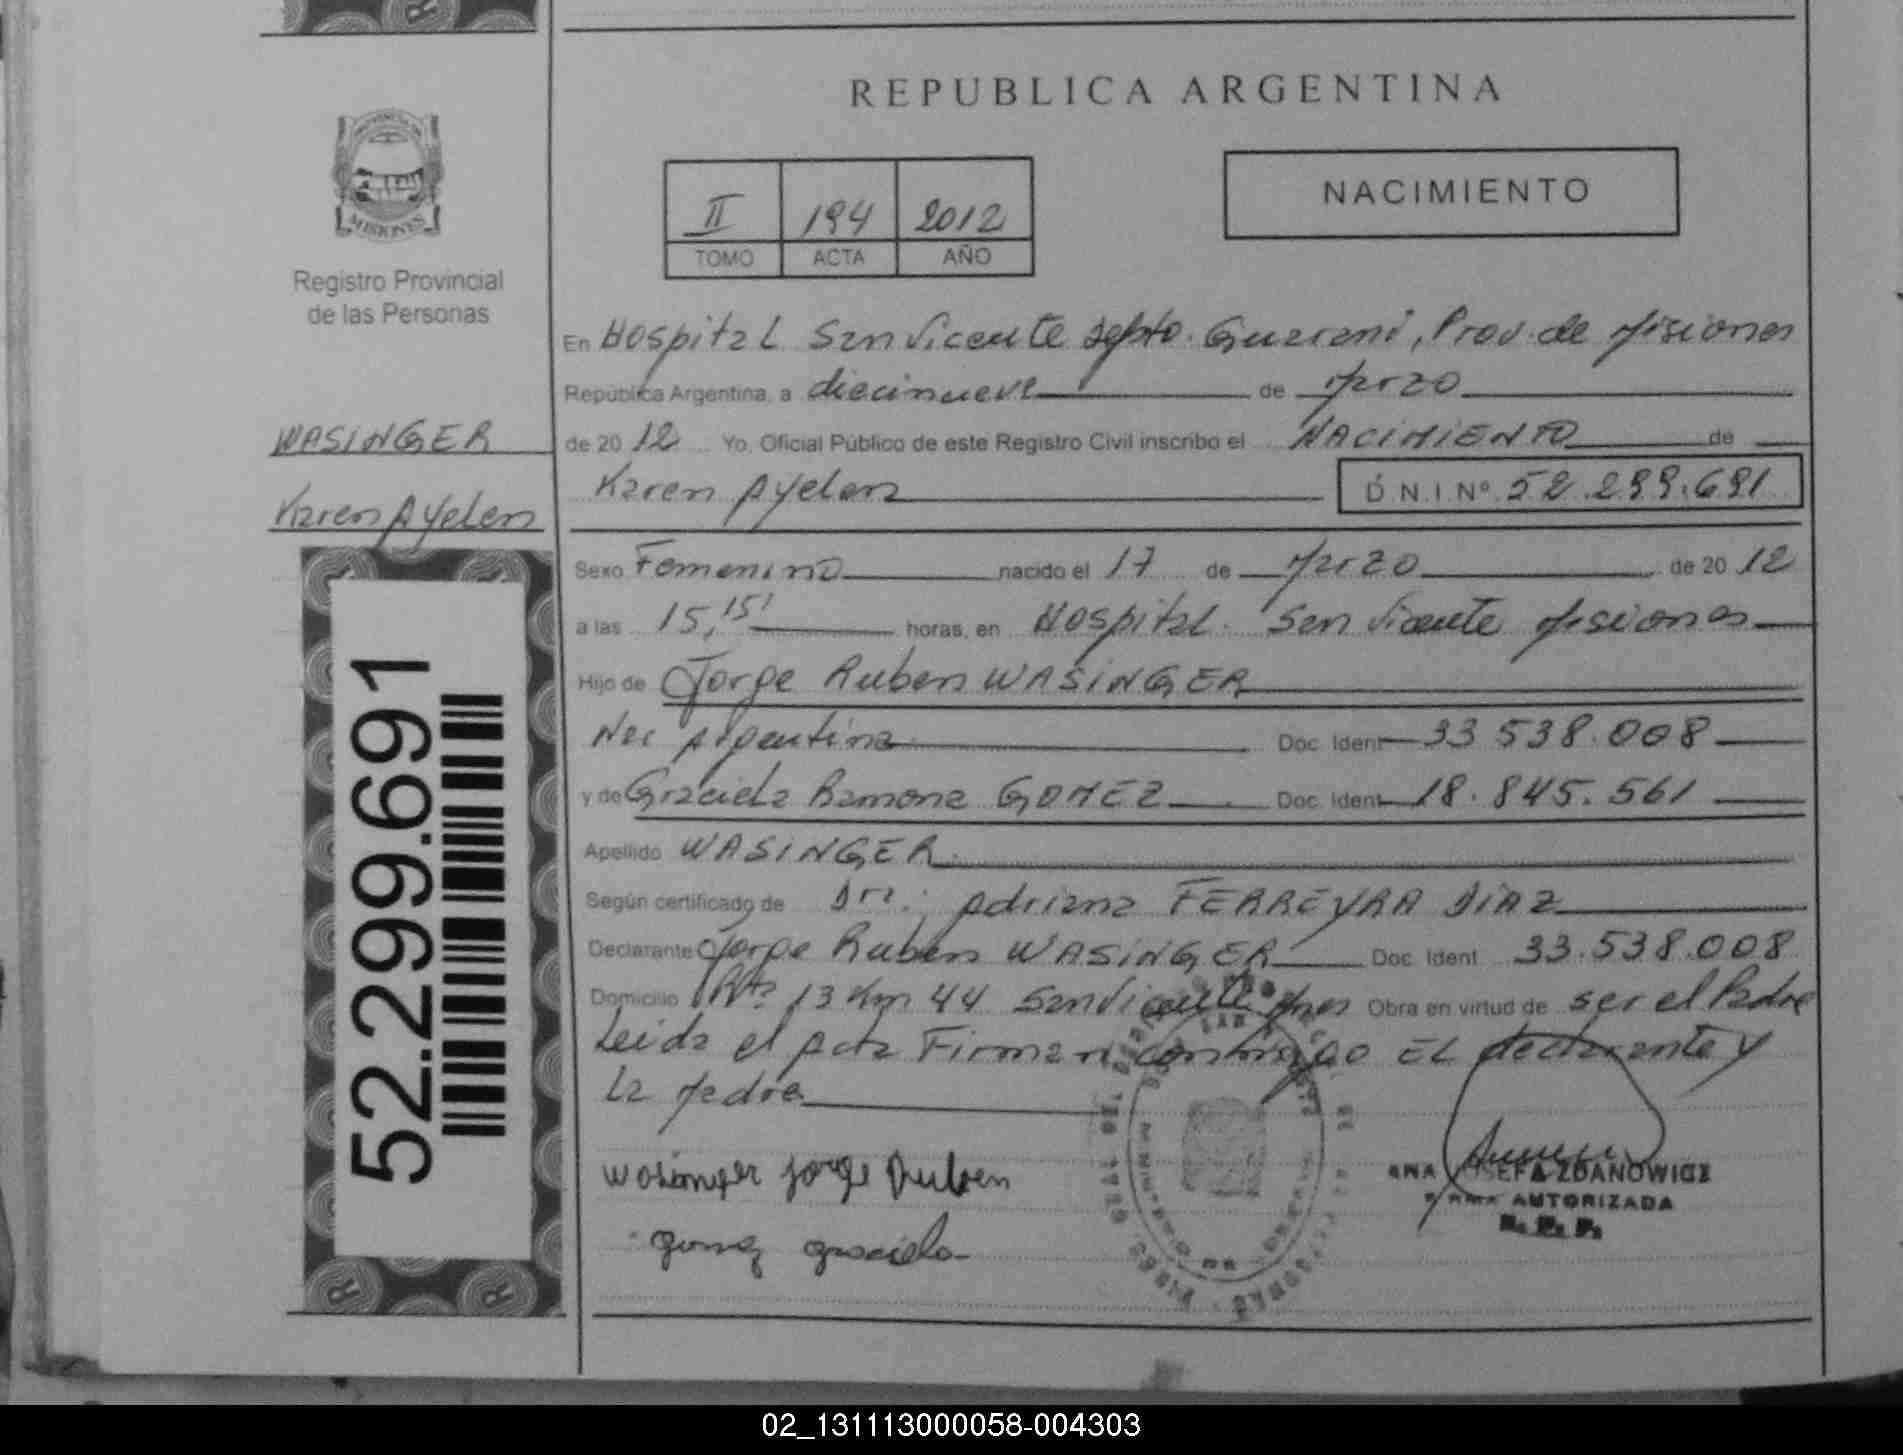 REPUBLICA ARGENTINA
NACIMIENTO
II 194 2012
TOMO ACTA AÑO
MISIONES
Registro Provincial
de las Personas
WASINGER
Karen Ayelen
52.299.691
En Hospital San Vicente Depto. Guarani, Prov. de Misiones
República Argentina, a diecinueve de Marzo
de 2012 Yo, Oficial Público de este Registro Civil inscribo el NACIMIENTO de
Karen Ayelen D.N.I.Nº 52.299.691
Sexo Femenino nacido el 17 de Marzo de 2012
a las 15,15' horas, en Hospital San Vicente Misiones
Hijo de Jorge Ruben WASINGER
Nac Argentina Doc. Ident 33.538.008
y de Graciela Ramona GOMEZ Doc. Ident 18.845.561
Apellido WASINGER
Según certificado de Dra. Adriana FERREYRA DIAZ
Declarante Jorge Ruben WASINGER Doc. Ident 33.538.008
Domicilio Rta 13 Km 44 San Vicente Mnes Obra en virtud de ser el Padre
Leida el Acta Firman conmigo EL declarante y
La Madre
Wasinger Jorge Ruben
Gomez Graciela
ANA JOSEFA ZDANOWICZ
FIRMA AUTORIZADA
R. P. P.
02_131113000058-004303